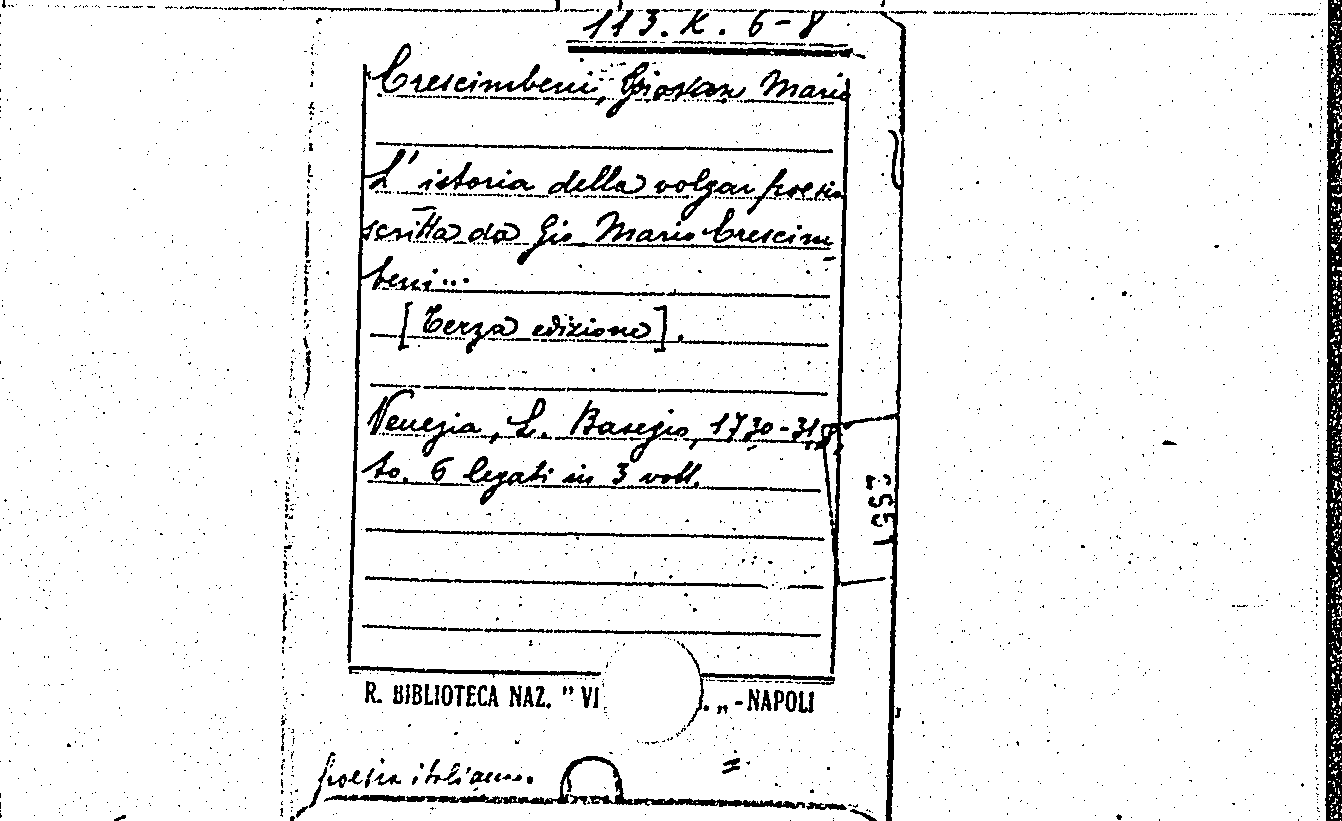 113. K. 6-8
Crescimbeni, Giovan Mario
L' istoria della volgar poesia
scritta da Gio. Mario Crescim
beni...
[Terza edizione].
Venezia, L. Basegio, 1730-31
to. 6 legati in 3 voll.
R. BIBLIOTECA NAZ. " VI . „ - NAPOLI
poesia italiana.
=